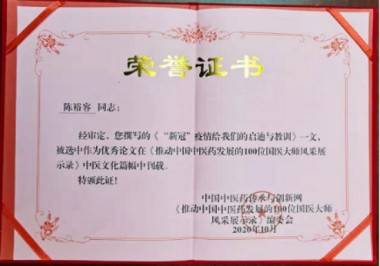 荣誉证书
陈裕容 同志：
经审定，您撰写的《“新冠”疫情给我们的启迪与教训》一文，
被选中作为优秀论文在《推动中国中医药发展的100位国医大师风采展
示录》中医文化篇幅中刊载。
特颁此证！
中国中医药传承与创新网
《推动中国中医药发展的100位国医大师
风采展示录》编委会
2020年10月